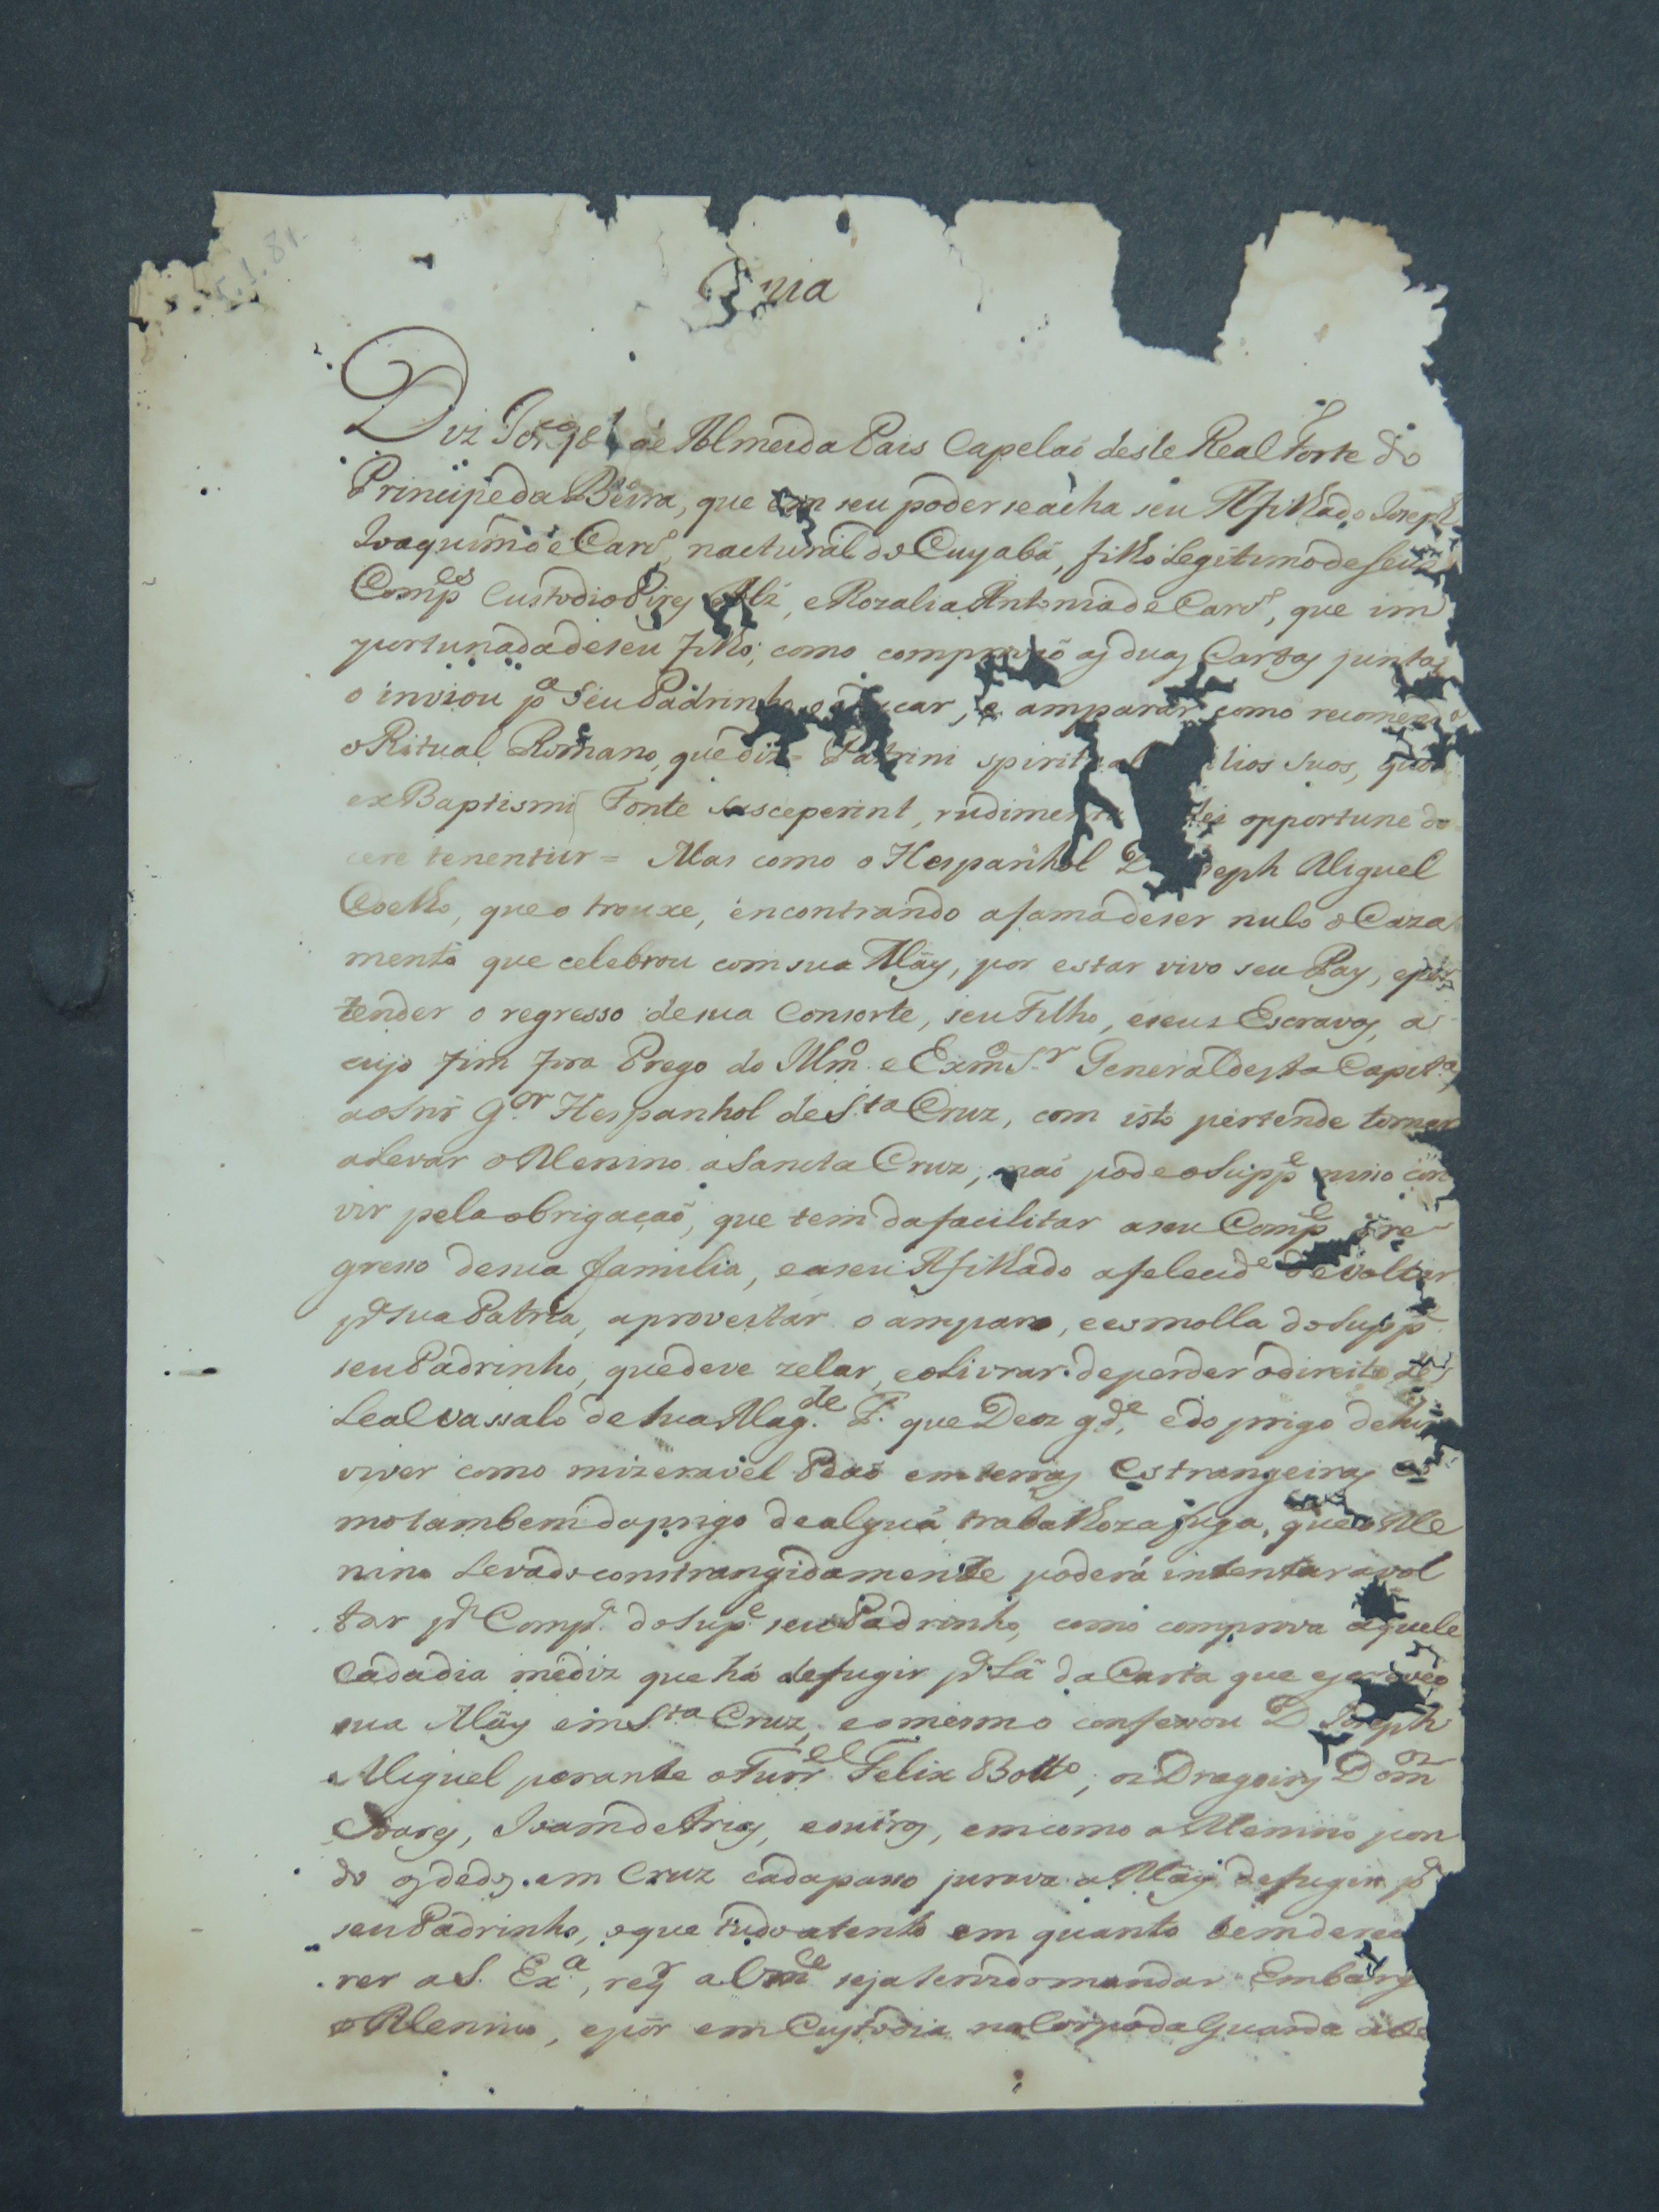 Diz de Almeida Pais Capelaõ deste Real Forte do
Principe da Beira, que em seu poder se acha seu Afilhado Joseph
Joaquim de Carv.º, nactural do Cuyabá, filho Legitimo de seus
Comp.es Custodio Pires Alz, e Rozalia Antonia de Carv.º, que im
portunada de seu filho, como comprovaõ as duas Cartas juntas
o inviou p.ª seu Padrinho o educar, e amparar como recomenda
o Ritual Romano, que diz = Patrini spiritual filios suos, quos
ex Baptismi Fonte susceperint, rudimenta fidei opportune do
cere tenentur = Mas como o Hespanhol D. Joseph Miguel
Coelho, que o trouxe, encontrando a fama de ser nulo o Caza
mento que celebrou com sua Mãy, por estar vivo seu Pay, e per
tender o regresso de sua Consorte, seu Filho, e seus Escravos, a
cujo fim fora Prego do Illm.º e Exm.º S.r General desta Capit.ª
ao Snr G.or Hespanhol de S.ta Cruz, com isto pertende tornar
a levar o Menino a Sancta Cruz, naõ pode o Supp.e nisso con
vir pela obrigaçaõ, que tem da facilitar a seu Comp.e o re
gresso de sua familia, e a seu Afilhado a felecid.e de voltar
p.ª sua Patria, aproveitar o amparo, e esmolla do Supp.e
seu Padrinho, que deve zelar, e o livrar de perder o direito de
Leal vassalo de sua Mag.de F. que Deos g.de, e do prigo de hir
viver como mizeravel Peaõ em terras Estrangeiras co
mo tambem do prigo de algua trabalhoza fuga, que o Me
nino Levado constrangidamente poderá intentar a vol
tar p.ª Comp.ª do Sup.e seu Padrinho, como comprova aquele
cada dia me diz que há de fugir p.ª Lá da Carta que escreveo
sua Mãy em S.ta Cruz, e o mesmo confessou D. Joseph
Miguel perante o Furr.el Felix Botto, os Dragoins Dom.os
Soares, Joam de Arias, e outros, em como o Menino pon
do os dedos em Cruz cada passo jurava a Mãy de fugir p.ª
seu Padrinho, o que tudo atento em quanto tem de recor
rer a S. Ex.ª, req.r a Vm.ce seja servido mandar Embarg
o Menino, e pôr em Custodia no Corpo da Guarda